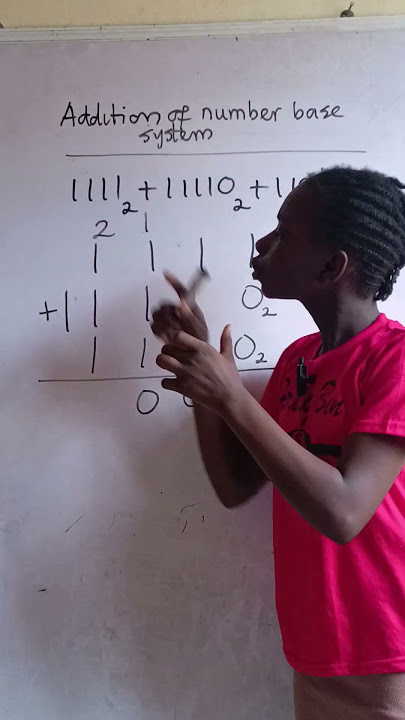 Addition of number base
system
1111₂ + 11110₂ + 11
2 1
1 1 1 1
+ 1 1 1 0₂
1 1 0₂
0